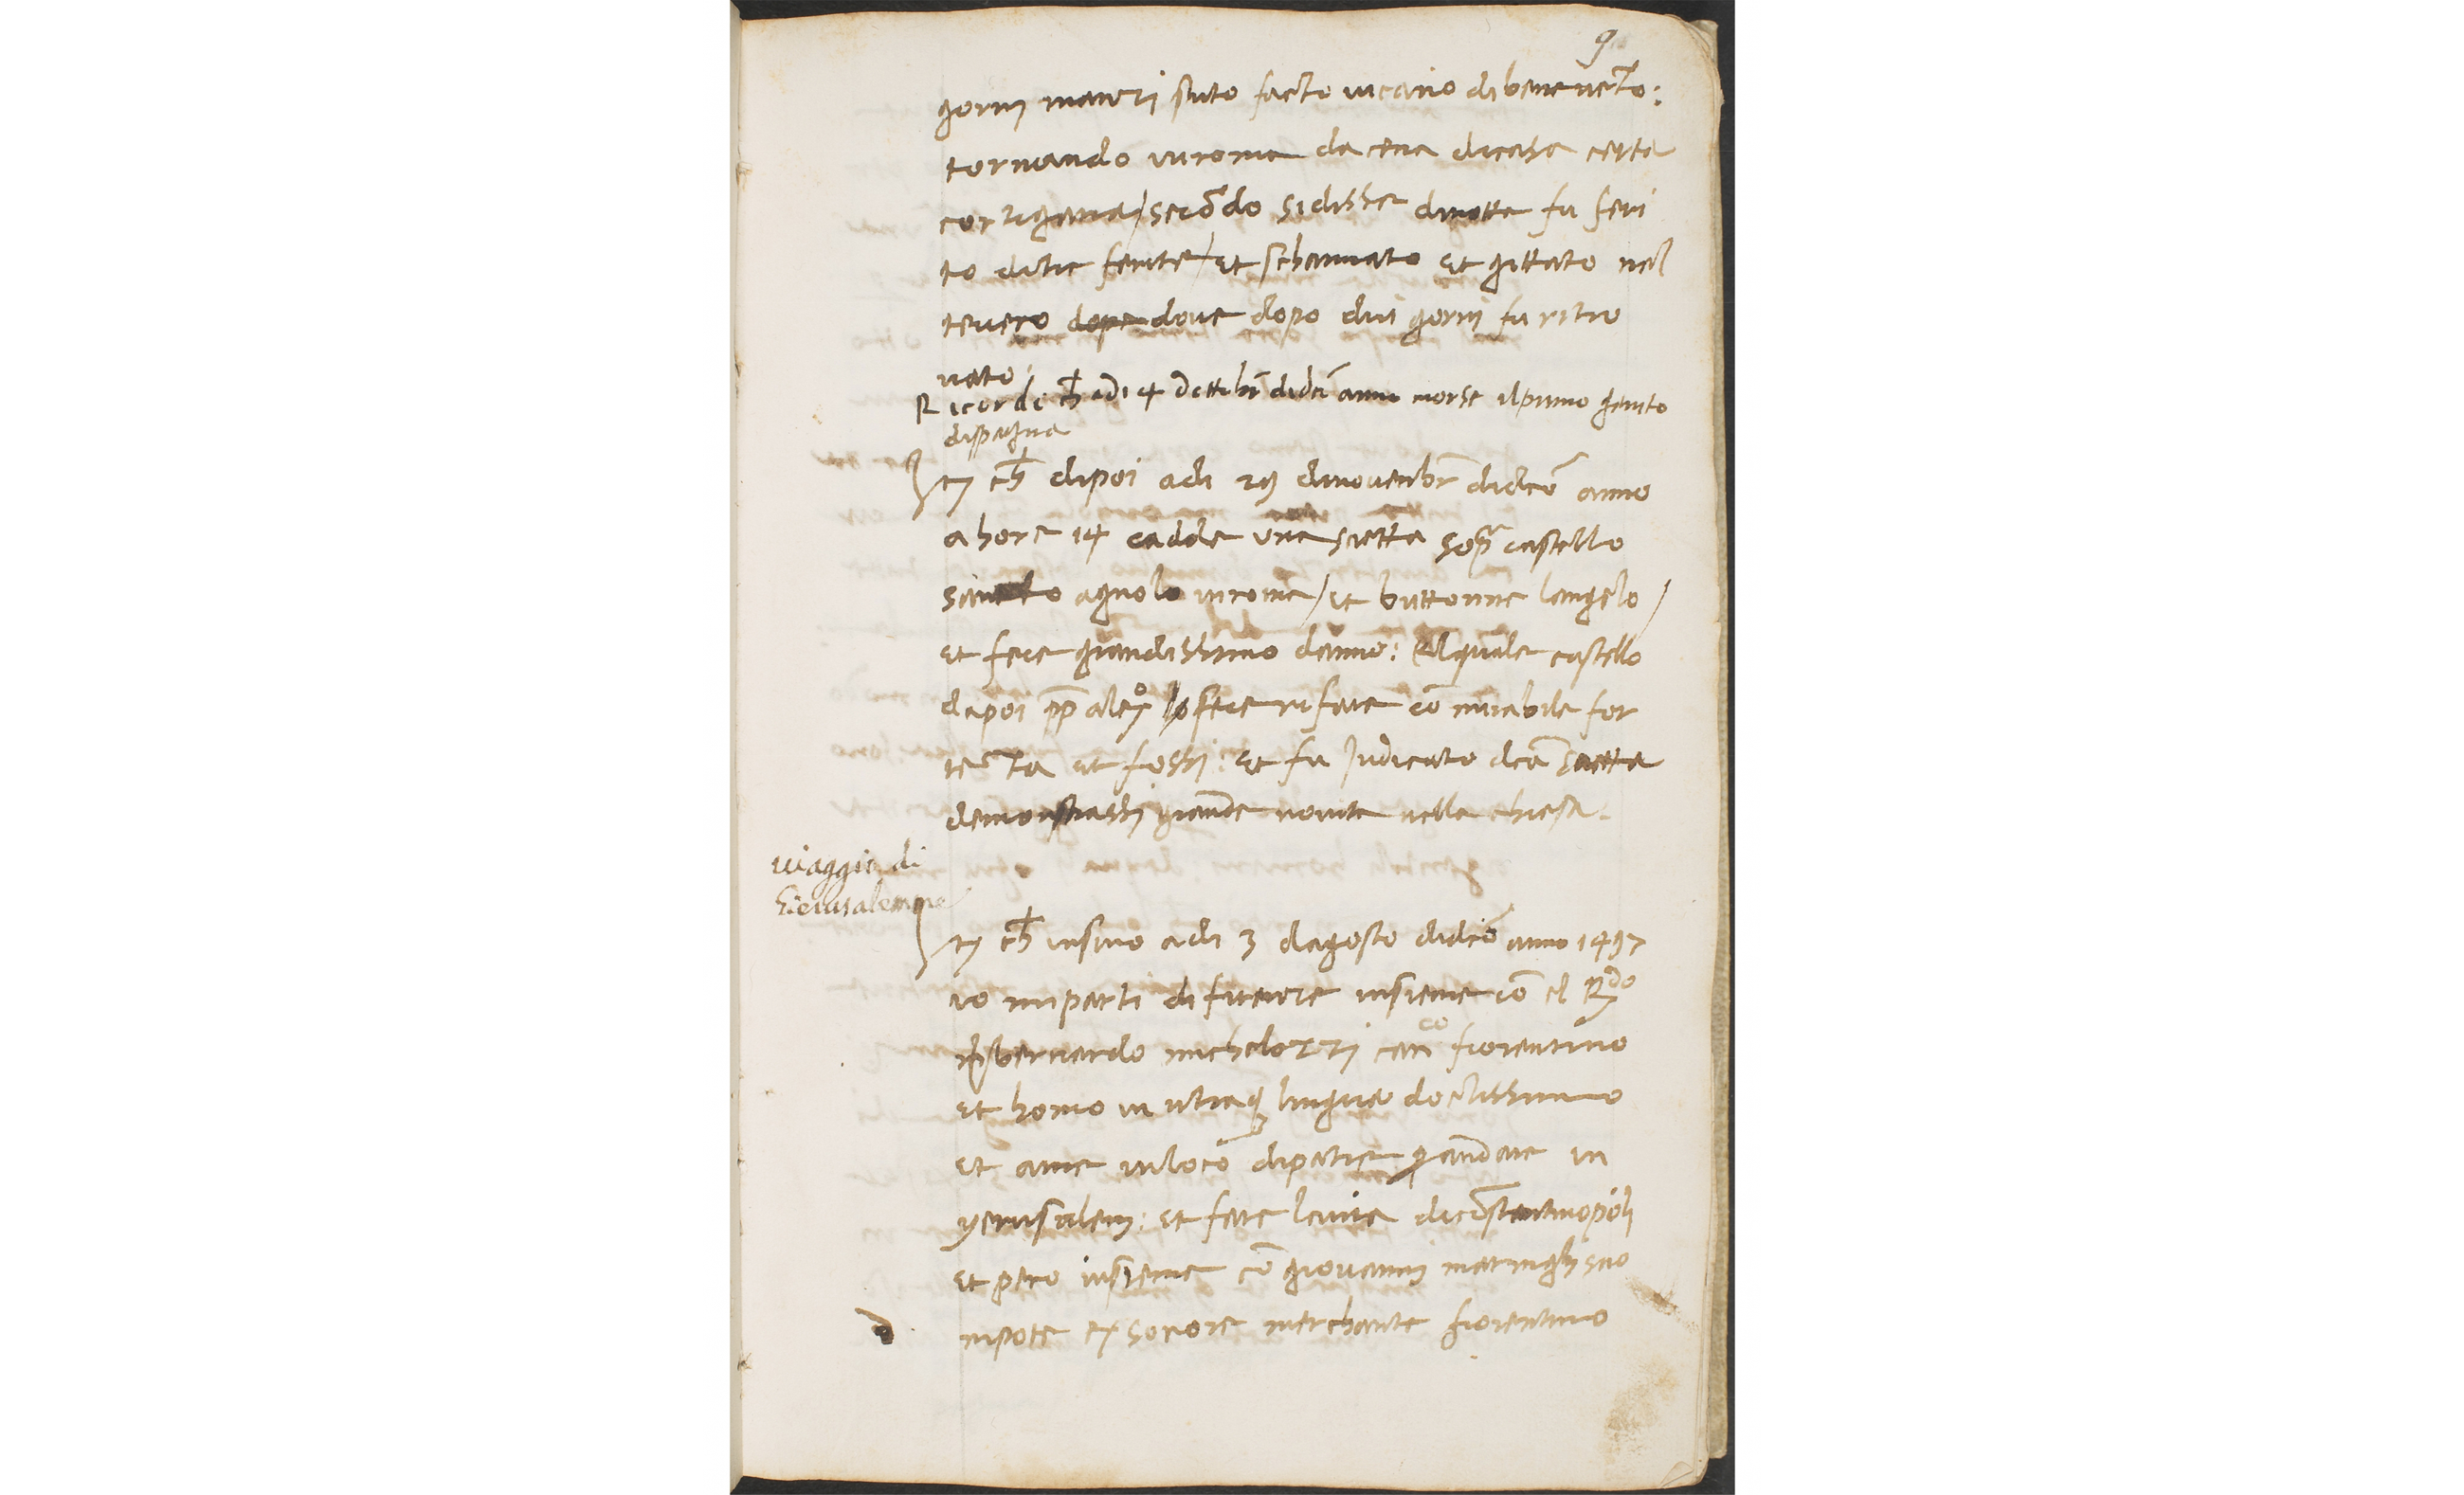 9
gorni inanzi suto facto vicario di benevēto:
tornando in roma da cena di casa certa
cortigiana / secōdo si disse di notte fu feri
to di tre ferite / et schannato et gittato nel
tevero dope dove dopo dui gorni fu ritro
vato:
Ricordi cħ adi 4 dottobr̄ di dcō anno morse il primo genito
di spagna
Itȝ cħ dipoi adi 29 di novenbr̄ di dcō anno
a hore 14 cadde una saetta sopª castello
sancto agnolo in roma / et buttonne langelo /
et fece grandissimo danno: El quale castello
dapoi pp̄ alexº lo fece rifare cō mirabile for
teza et fossi: et fu Judicato dcā saetta
demonstrassi grande novita nella chiesa.
viaggio di
hierusalemme
Itȝ cħ insino adi 3 dagosto di dcō anno 1497
io mi parti di firenze insieme cō el Rdo
mʳ bernardo michelozzi canco fiorentino
et homo in utraqȝ lingua doctissimo
et a me in loco di patre p andare in
yerusalem: et fare la via di cōstantinopoli
et pero insieme cō giovanni maringhi suo
nipote ex sorore merchante fiorentino